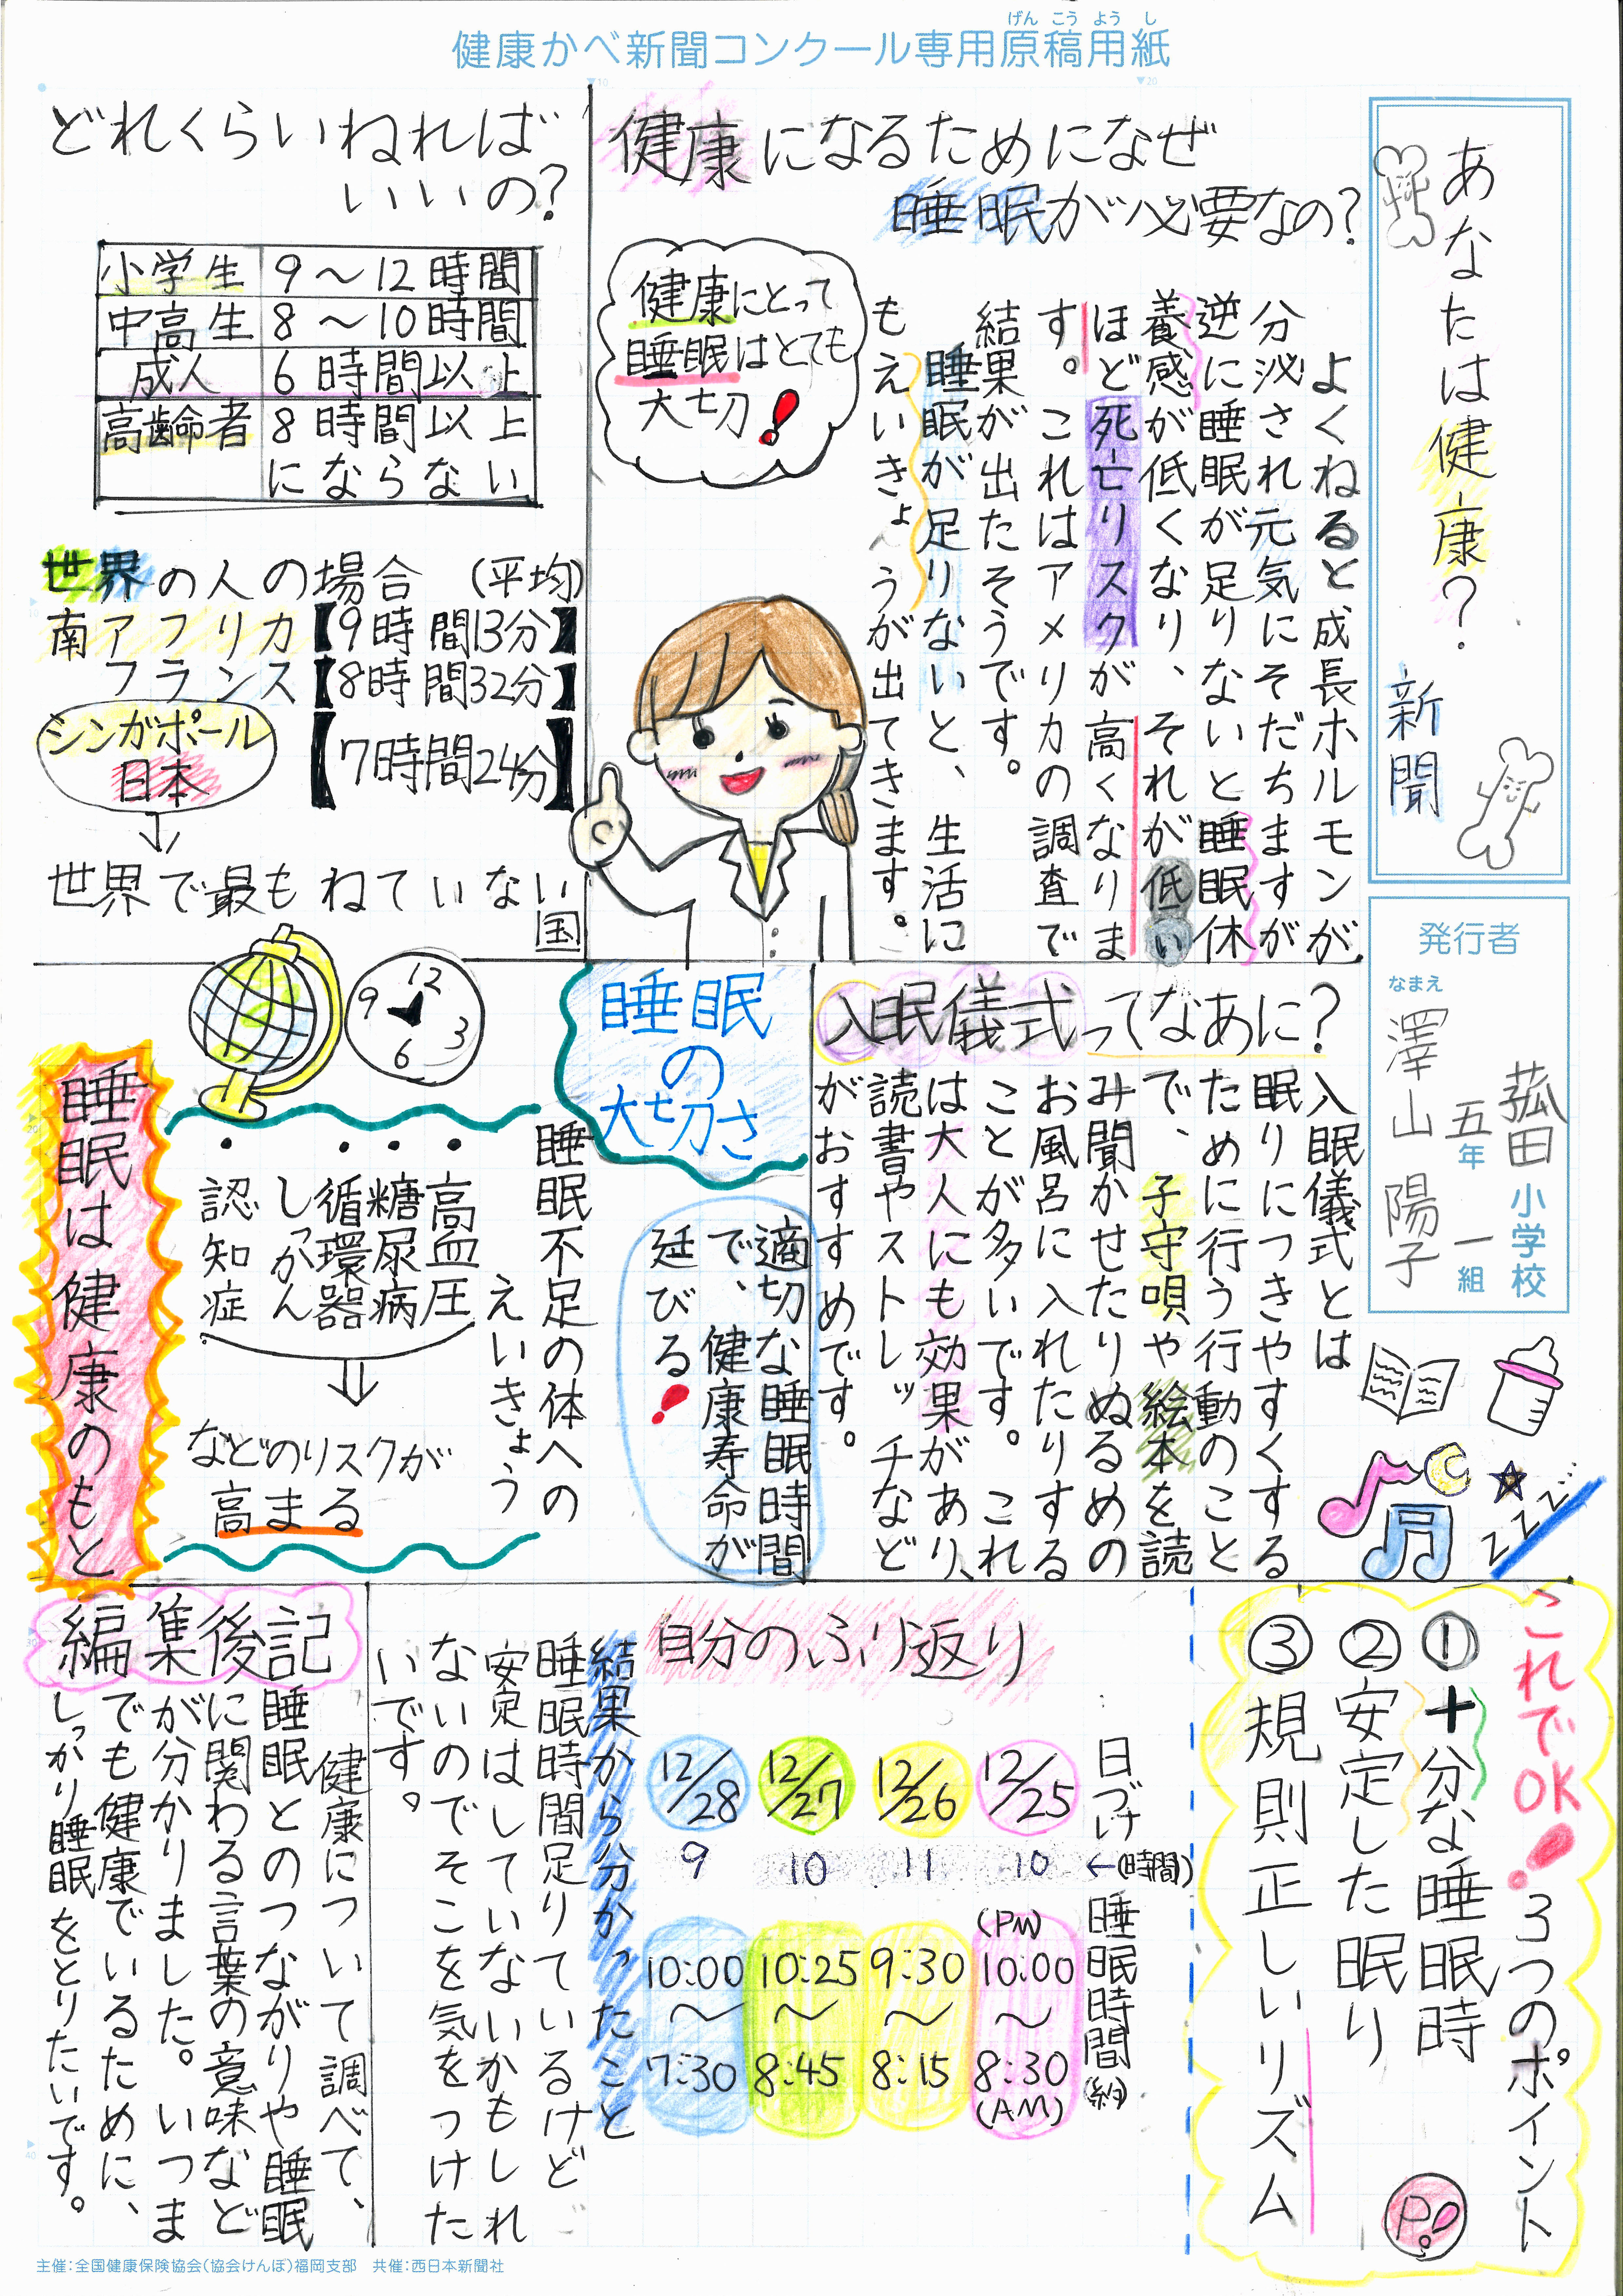 健康かべ新聞コンクール専用原稿用紙
げんこうようし
あなたは健康?
新聞
発行者
なまえ
菰田小学校
五年一組
澤山陽子
健康になるためになぜ
睡眠が必要なの?
よくねると成長ホルモンが
分泌され元気にそだちますが
逆に睡眠が足りないと睡眠休
養感が低くなり、それが低い
ほど死亡リスクが高くなりま
す。これはアメリカの調査で
結果が出たそうです。
睡眠が足りないと、生活に
もえいきょうが出てきます。
健康にとって
睡眠はとても
大切!
どれくらいねれば
いいの?
小学生 9〜12時間
中高生 8〜10時間
成人 6時間以上
高齢者 8時間以上
にならない
世界の人の場合(平均)
南アフリカ【9時間13分】
フランス【8時間32分】
シンガポール
日本
【7時間24分】
↓
世界で最もねていない
国
入眠儀式ってなあに?
入眠儀式とは
眠りにつきやすくする
ために行う行動のこと
で、子守唄や絵本を読
み聞かせたりぬるめの
お風呂に入れたりする
ことが多いです。これ
は大人にも効果があり、
読書やストレッチなど
がおすすめです。
zzz
睡眠
の
大切さ
適切な睡眠時間
で、健康寿命が
延びる!
12
3
6
9
睡眠不足の体への
えいきょう
・高血圧
・糖尿病
・循環器
しっかん
・認知症
⇓
などのリスクが
高まる
睡眠は健康のもと
これでOK!3つのポイント
①十分な睡眠時
②安定した眠り
③規則正しいリズム
P!
自分のふり返り
日づけ ←(時間) 睡眠時間(約)
12/25 10 (PM)10:00〜8:30(AM)
12/26 11 9:30〜8:15
12/27 10 10:25〜8:45
12/28 9 10:00〜7:30
結果から分かったこと
睡眠時間足りているけど
安定はしていないかもしれ
ないのでそこを気をつけた
いです。
編集後記
健康について調べて、
睡眠とのつながりや睡眠
に関わる言葉の意味など
が分かりました。いつま
でも健康でいるために、
しっかり睡眠をとりたいです。
主催:全国健康保険協会(協会けんぽ)福岡支部 共催:西日本新聞社